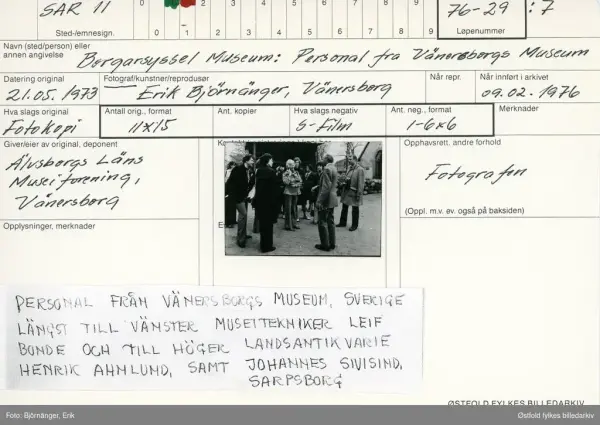 SAR 11
0 0 0 0
76-29 :7
Sted-/emnesign. 0 1 2 3 4 5 6 7 8 9 Løpenummer
Navn (sted/person) eller
annen angivelse Borgarsyssel Museum: Personal fra Vänersborgs Museum
Datering original Fotograf/kunstner/reprodusør Når repr. Når innført i arkivet
21.05.1973 Erik Björnänger, Vänersborg 09.02.1976
Hva slags original Antall orig., format Ant. kopier Hva slags negativ Ant. neg., format Merknader
Fotokopi 11x15 S-Film 1-6x6
Giver/eier av original, deponent Opphavsrett, andre forhold
Älvsborgs Läns
Museiforening,
Vänersborg
Fotografen
(Oppl. m.v. ev. også på baksiden)
Opplysninger, merknader
PERSONAL FRÅN VÄNERSBORGS MUSEUM, SVERIGE
LÄNGST TILL VÄNSTER MUSEITEKNIKER LEIF
BONDE OCH TILL HÖGER LANDSANTIKVARIE
HENRIK AHNLUND, SAMT JOHANNES SIVISIND,
SARPSBORG
ØSTFOLD FYLKES BILLEDARKIV
Foto: Björnänger, Erik Østfold fylkes billedarkiv